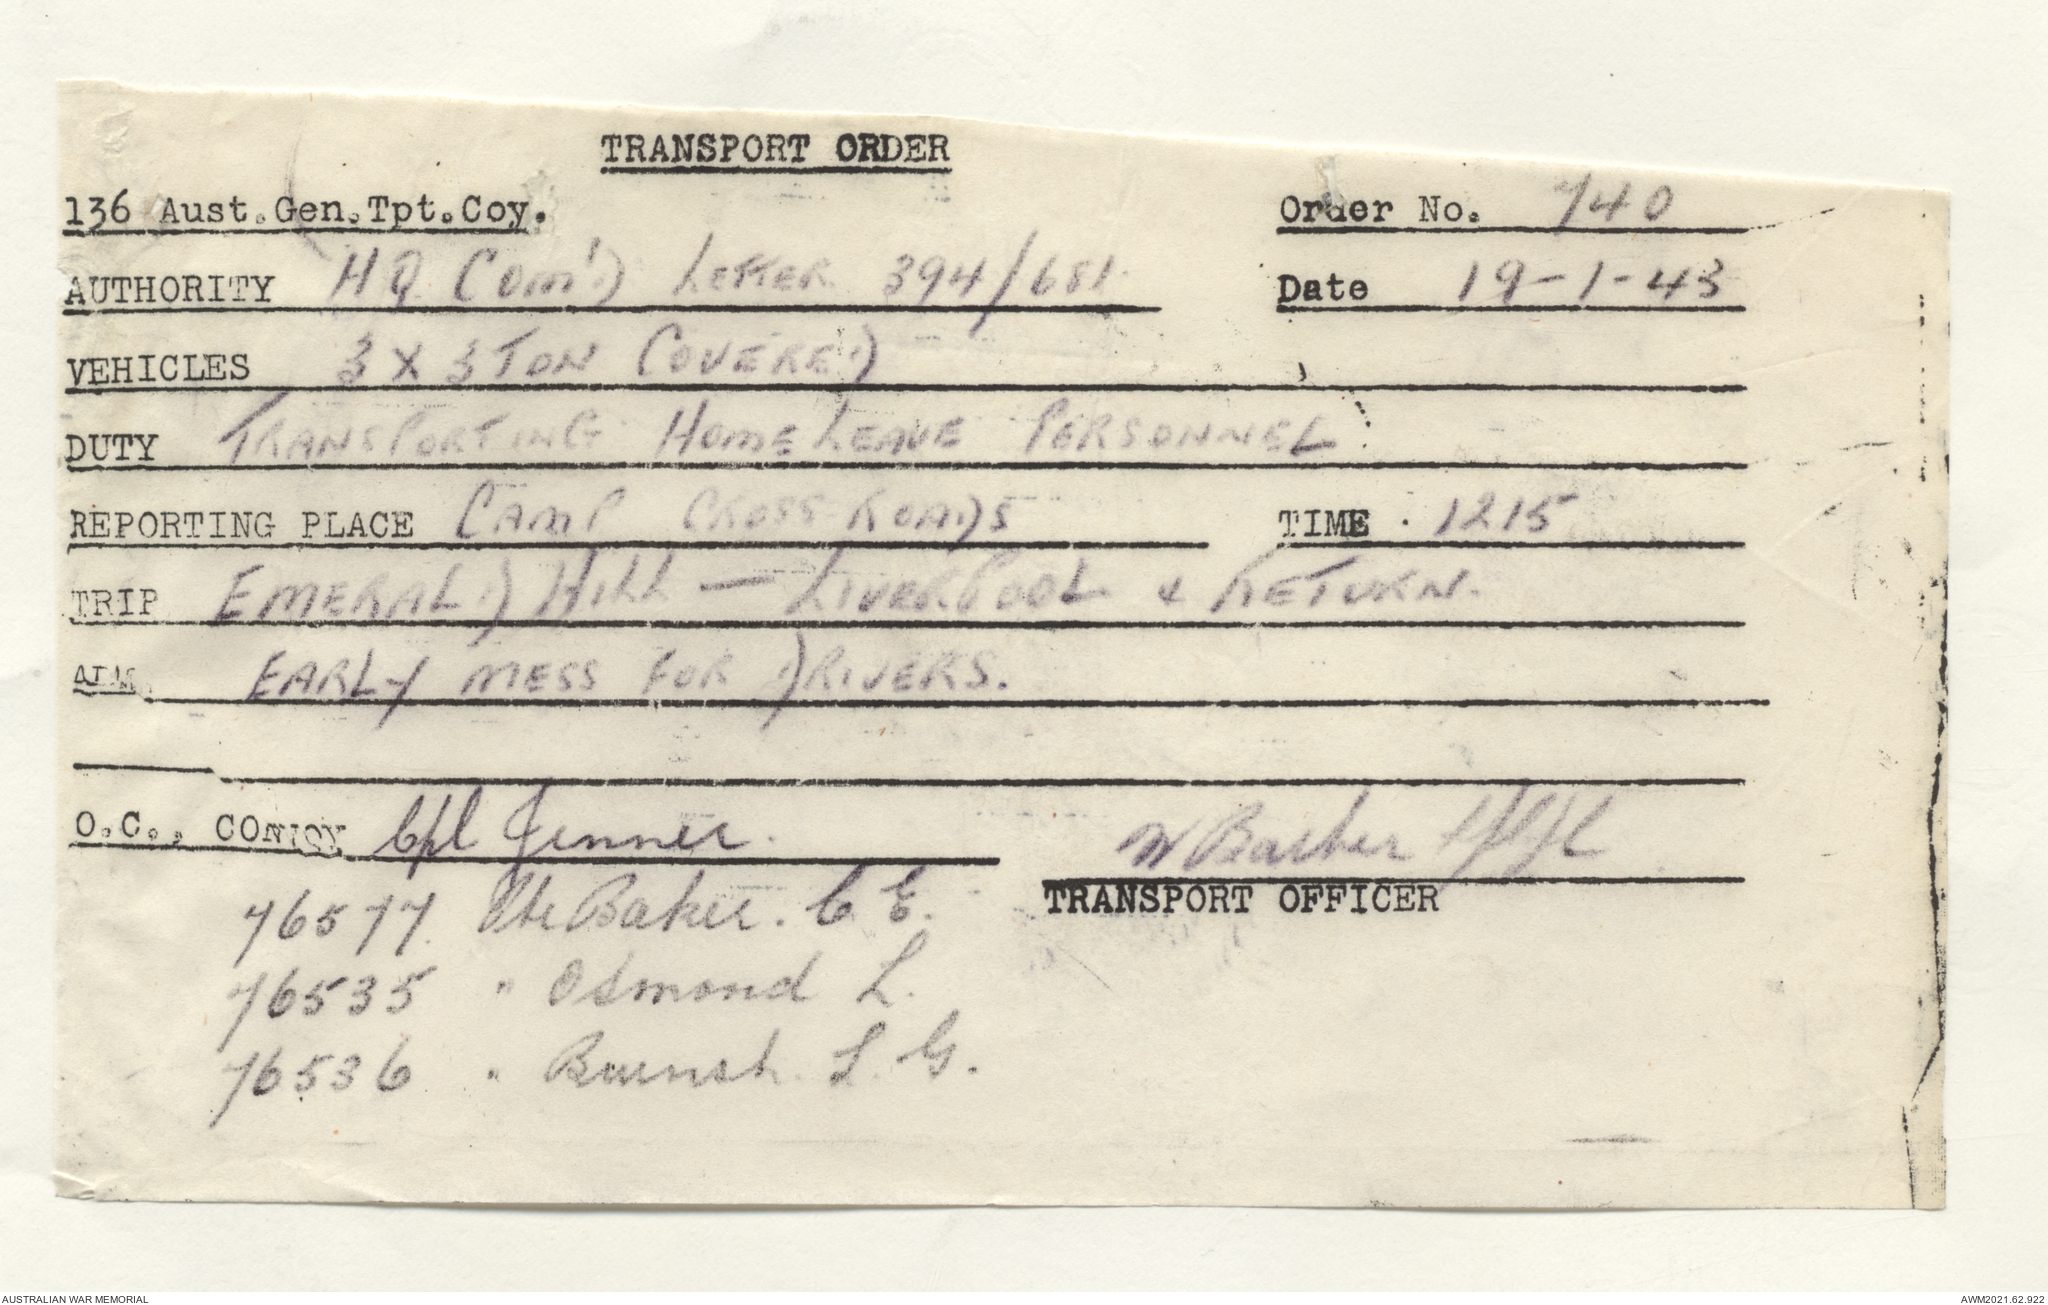 TRANSPORT ORDER
136 Aust.Gen.Tpt.Coy. Order No. 740
AUTHORITY HQ Com'D LETTER 394/681 Date 19-1-43
VEHICLES 3 X 3 TON COVERED
DUTY TRANSPORTING HOME LEAVE PERSONNEL
REPORTING PLACE CAMP CROSS ROADS TIME 1215
TRIP EMERALD HILL — LIVERPOOL & RETURN.
EARLY MESS FOR DRIVERS.
O.C., CONVOY Cpl Jenner. W Barker
TRANSPORT OFFICER
76577. Pte Baker. C. E.
76535 " Osmond L.
76536 " L. G.
AUSTRALIAN WAR MEMORIAL AWM2021.62.922